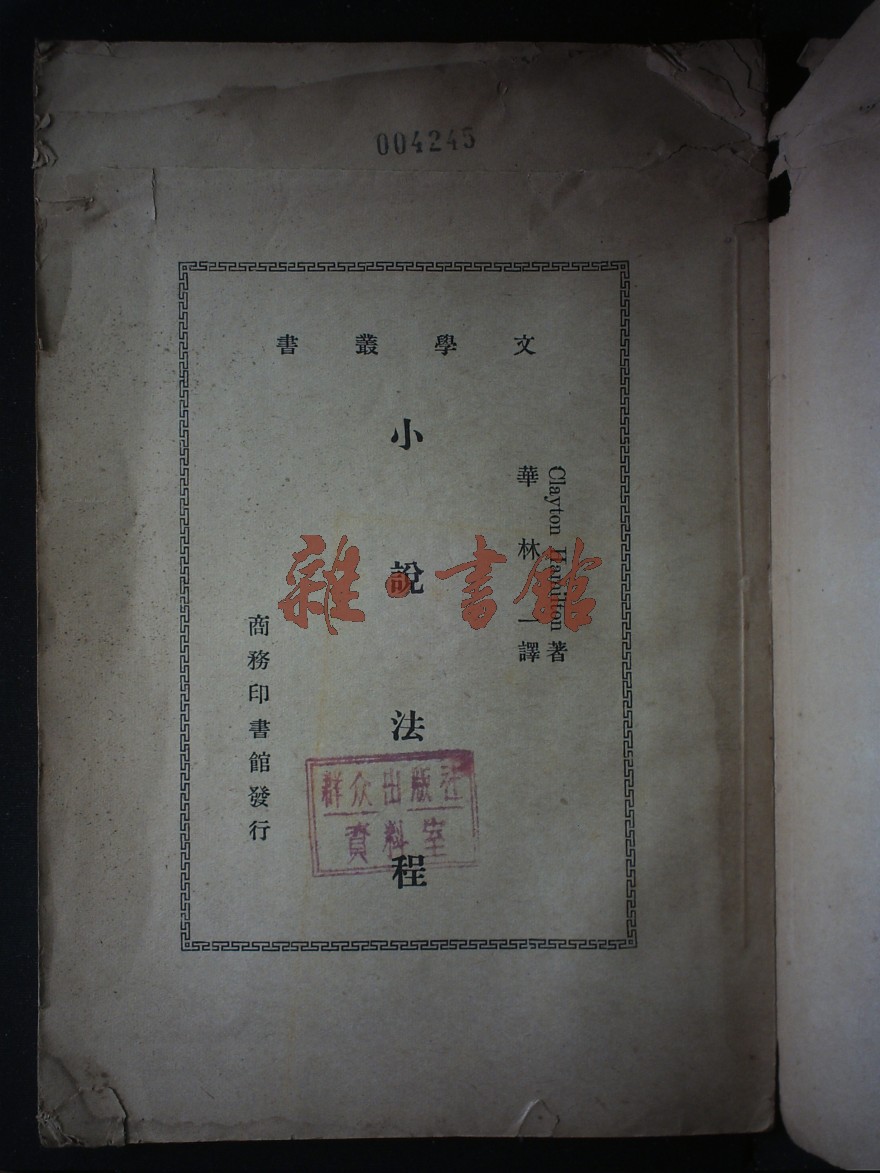 004245
文學叢書
Clayton Hamilton 著
華林一譯
小說法程
商務印書館發行
雜·書館
群众出版社
資料室